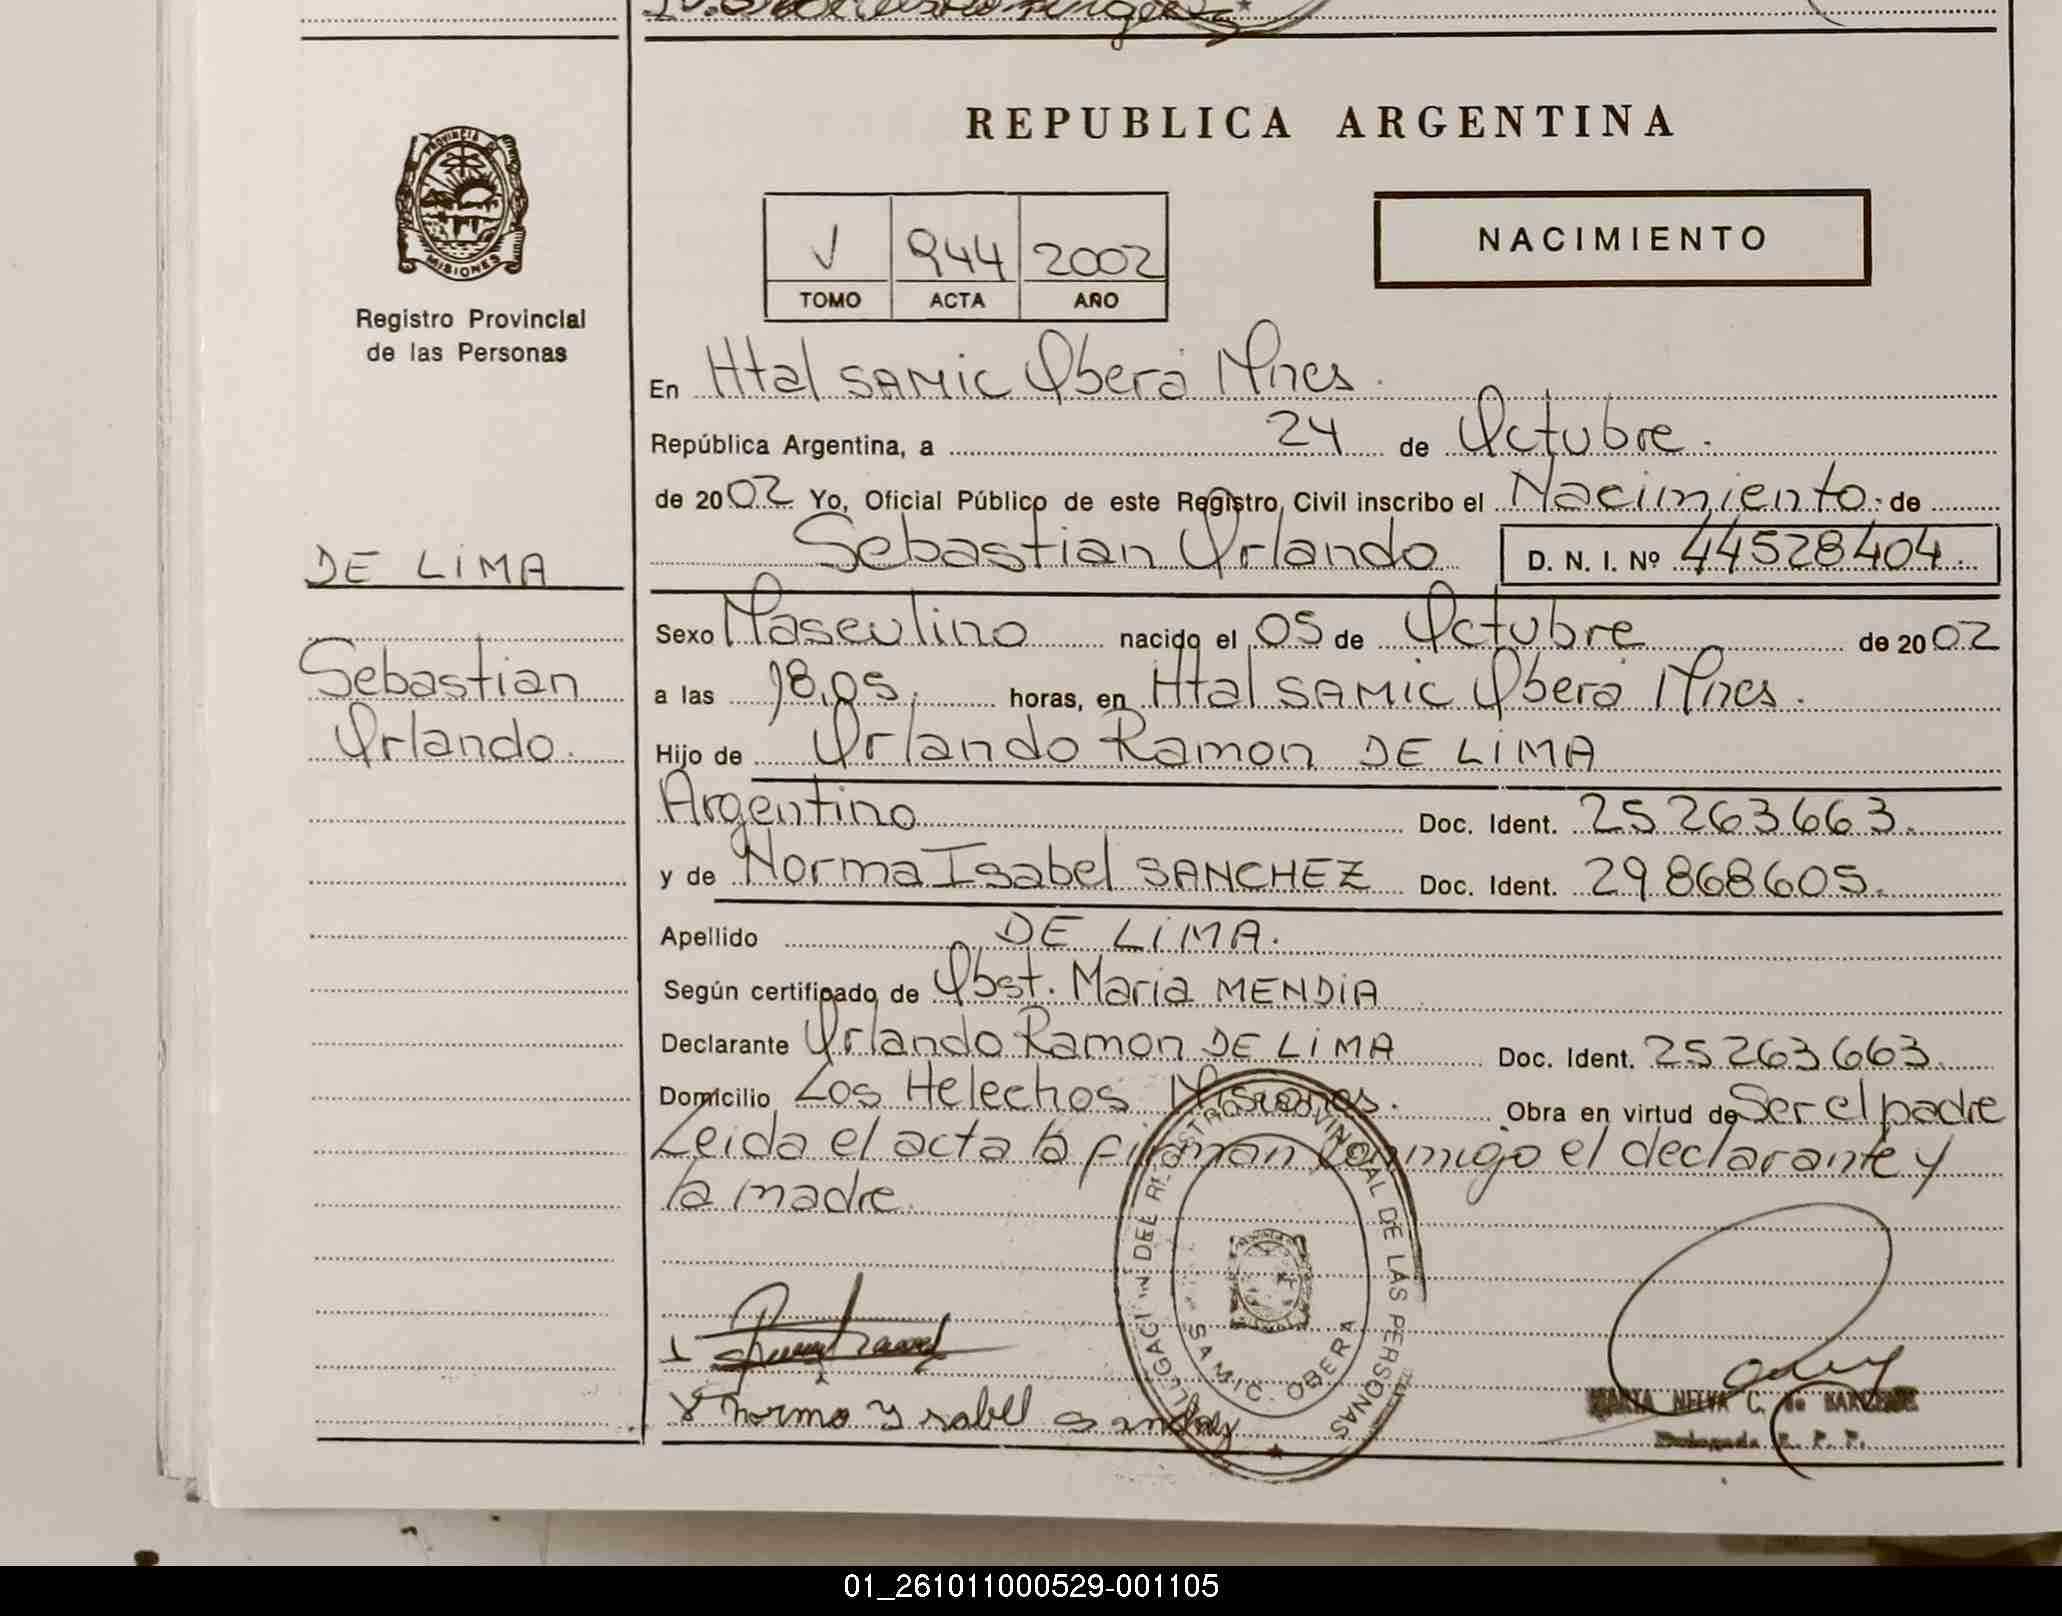 REPUBLICA ARGENTINA
PROVINCIA DE
MISIONES
Registro Provincial
de las Personas
NACIMIENTO
V 944 2002
TOMO ACTA AÑO
En Htal SAMIC Oberá Mnes.
República Argentina, a 24 de Octubre.
de 2002 Yo, Oficial Público de este Registro Civil inscribo el Nacimiento de
Sebastian Orlando D. N. I. Nº 44528404
DE LIMA
Sebastian
Orlando.
Sexo Masculino nacido el 05 de Octubre de 2002
a las 18,05. horas, en Htal SAMIC Oberá Mnes.
Hijo de Orlando Ramon DE LIMA
Argentino Doc. Ident. 25263663.
y de Norma Isabel SANCHEZ Doc. Ident. 29868605.
Apellido DE LIMA.
Según certificado de Obst. Maria MENDIA
Declarante Orlando Ramon DE LIMA Doc. Ident. 25263663.
Domicilio Los Helechos Misiones. Obra en virtud de Ser el padre
Leida el acta la firman conmigo el declarante y
la madre.
DEL REGISTRO PROVINCIAL DE LAS PERSONAS
SAMIC. OBERA
Norma Ysabel Sanchez
01_261011000529-001105